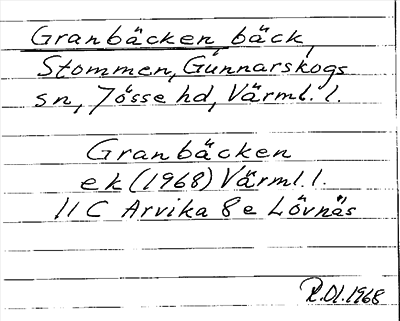 Granbäcken, bäck,
Stommen, Gunnarskogs
sn, Jösse hd, Värml. l.
Granbäcken
ek (1968) Värml. l.
11 C Arvika 8 e Lövnäs
R.Dl. 1968